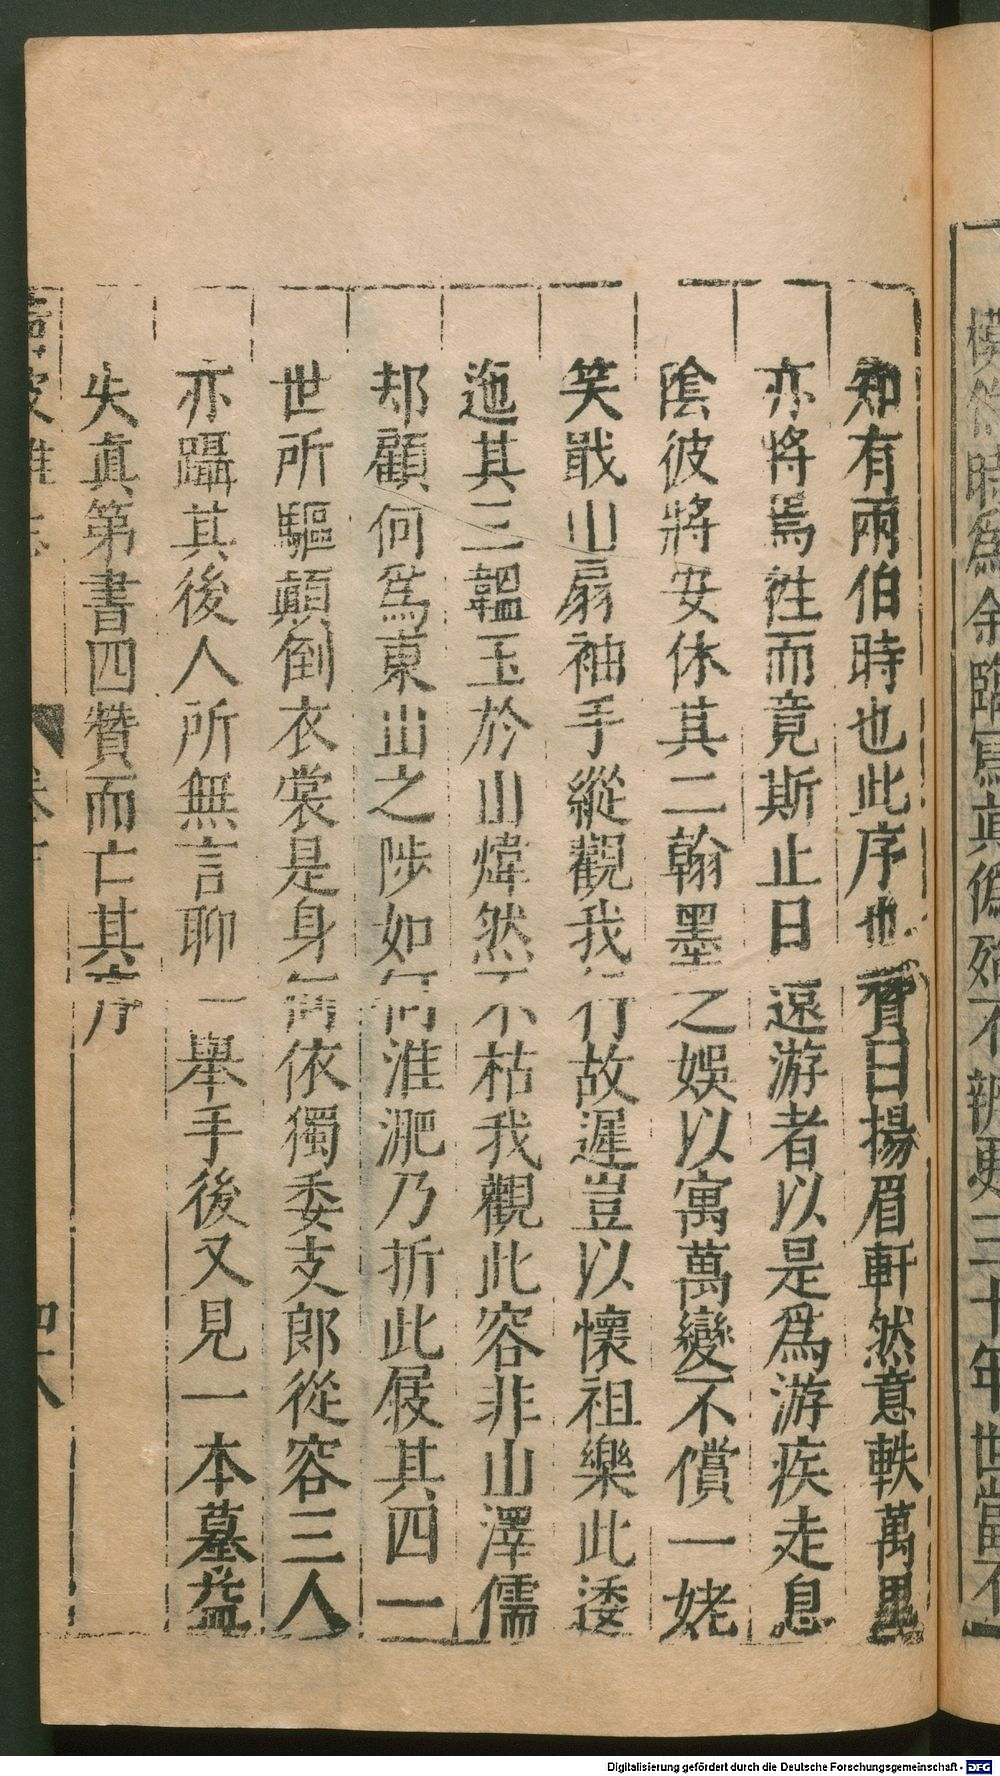 知有兩伯時也此序也賛曰揚眉軒然意軼萬里
亦將焉往而竟斯止日遠游者以是爲游疾走息
陰彼將安休其二翰墨之娛以寓萬變不償一姥
笑戢山扇袖手縱觀我行故遲豈以懷祖樂此逶
迤其三韞玉於山煒然不枯我觀此容非山澤儒
却顧何爲東山之陟如何淮淝乃折此屐其四一
世所驅顛倒衣裳是身無依獨委支郎從容三人
亦躡其後人所無言聊一舉手後又見一本墓益
失真第書四贊而亡其序
模倣時爲余臨寫真僞殆不辨更三十年世當不
Digitalisierung gefördert durch die Deutsche Forschungsgemeinschaft - DFG